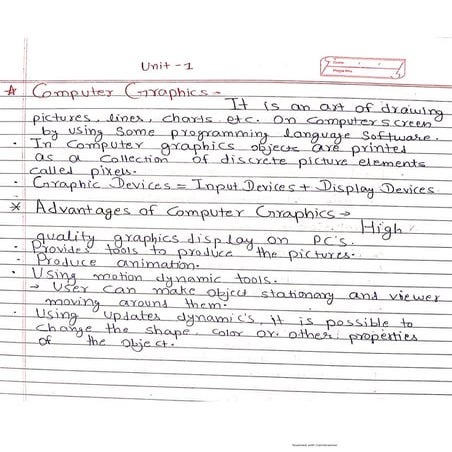 Unit - 1
* Computer Graphics -
It is an art of drawing
pictures, lines, charts etc. On computer screen
by using some programming language software.
· In Computer graphics objects are printed
as a Collection of discrete picture elements
called pixels.
· Graphic Devices = Input Devices + Display Devices
* Advantages of Computer Graphics →
High
quality graphics display on PC's.
· Provides tools to produce the pictures.
· Produce animation.
· Using motion dynamic tools.
→ User can make object stationary and viewer
moving around them.
· Using updates dynamic's, it is possible to
change the shape, color or other properties
of the object.